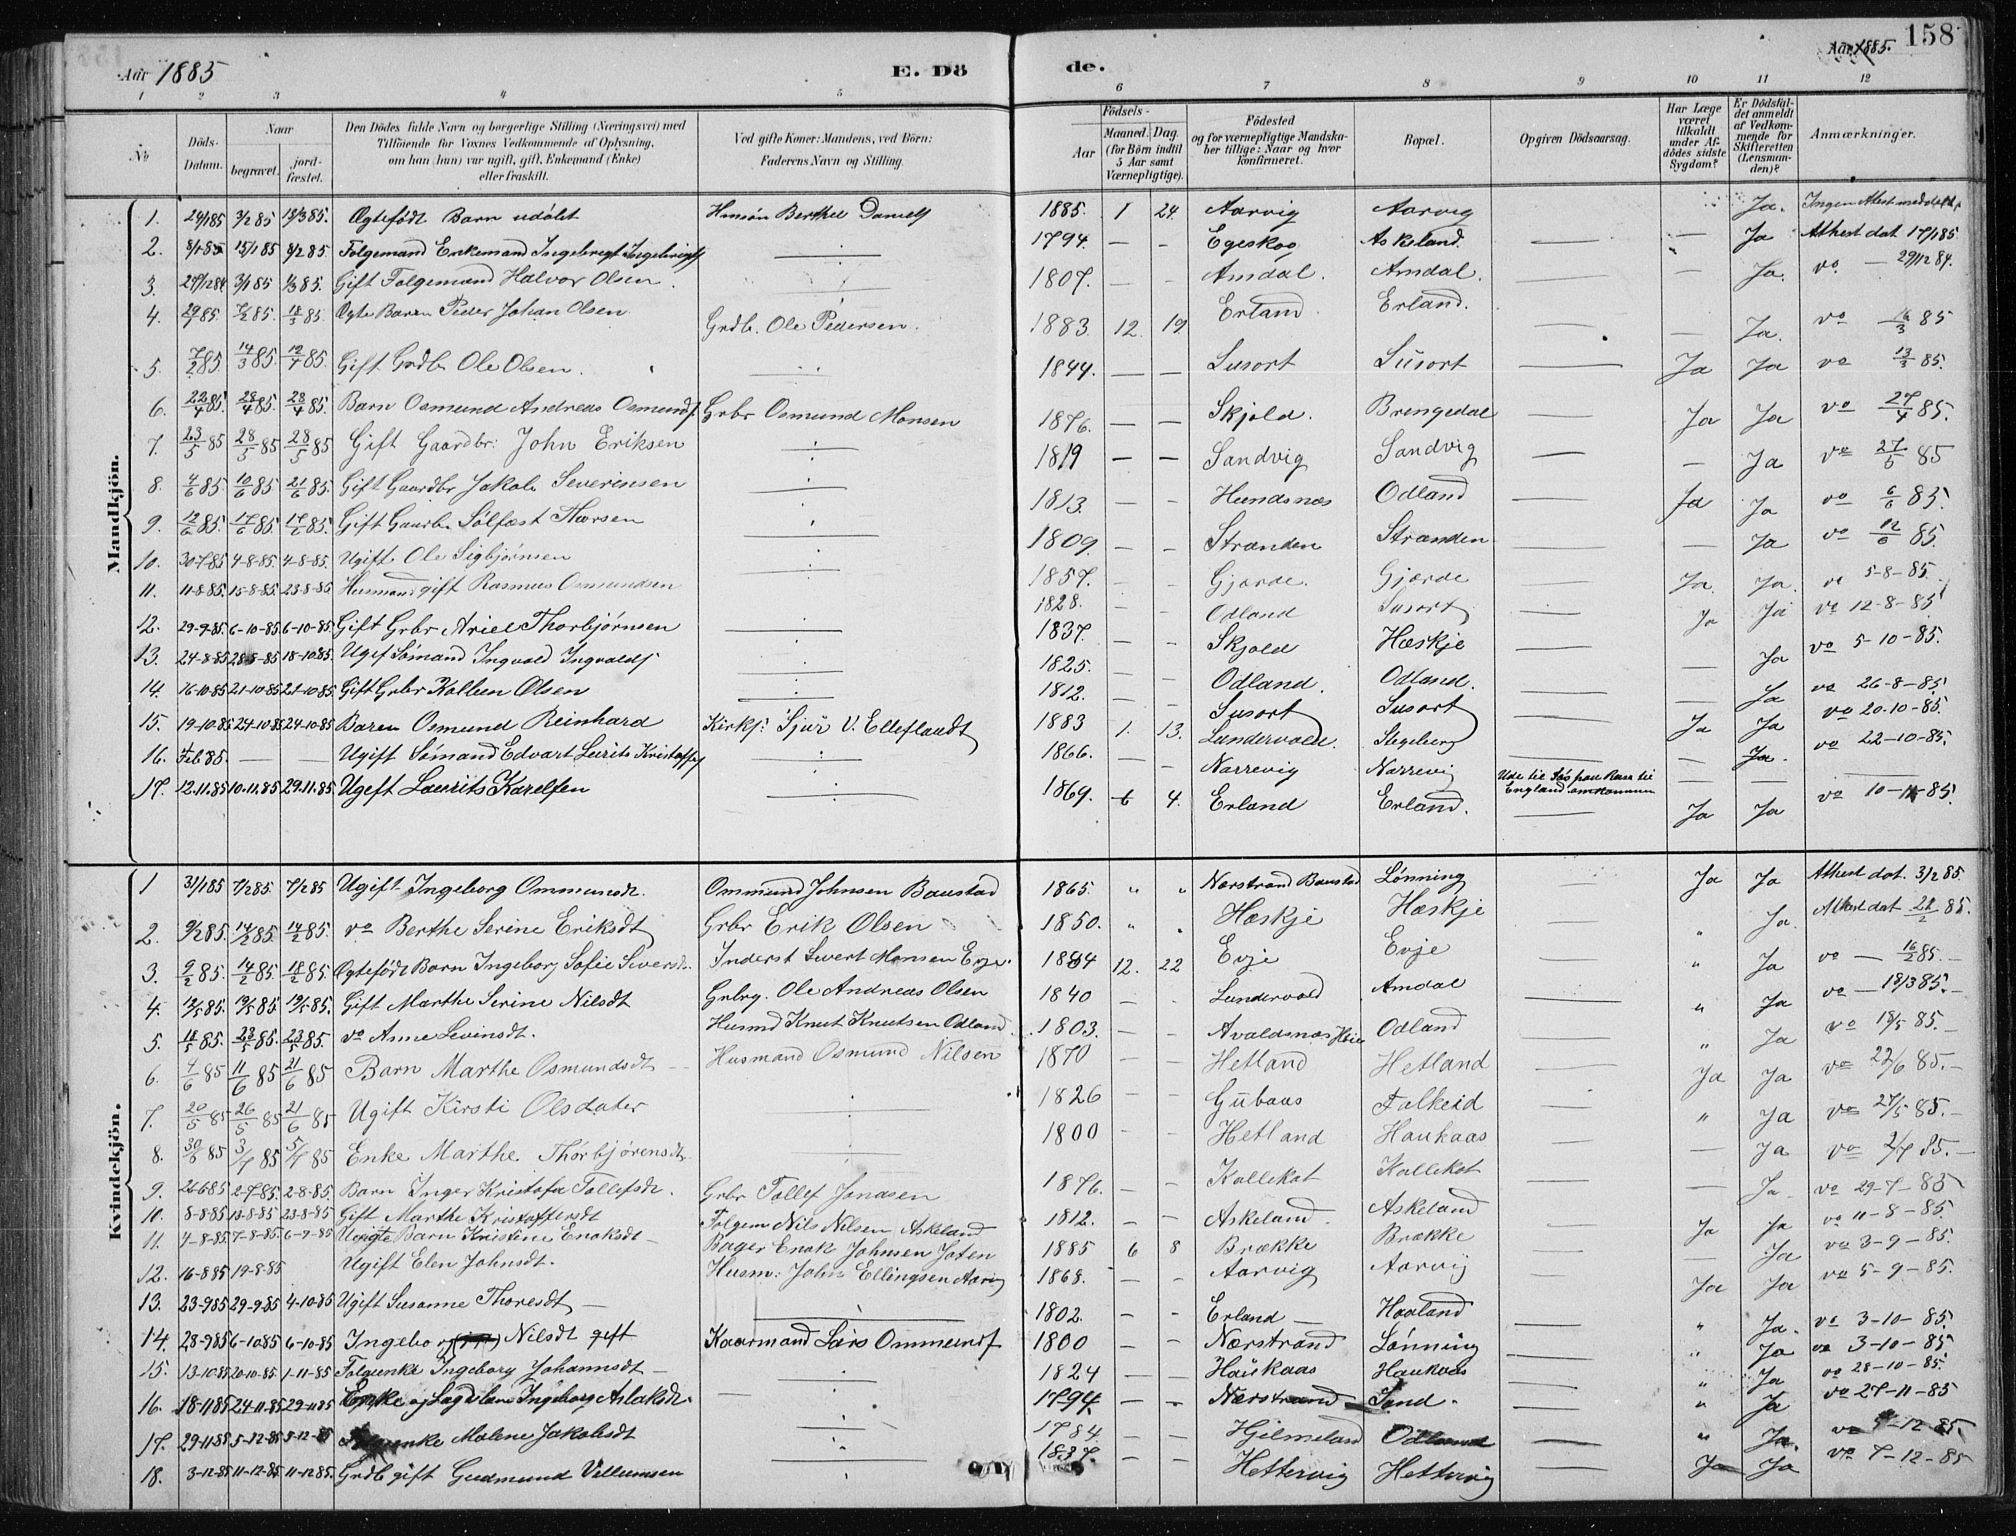 Aar 1885
E. Dö
de.
Aar 1885.
158
1 2 3 4 5 6 7 8 9 10 11 12
No
Döds-Datum.
Naar
begravet.
jord-fæstet.
Den Dödes fulde Navn og borgerlige Stilling (Næringsvei) med
Tilföiende for Voxnes Vedkommende af Oplysning,
om han (hun) var ugift, gift, Enkemand (Enke)
eller fraskilt.
Ved gifte Koner: Mandens, ved Börn:
Faderens Navn og Stilling.
Födsels-
Aar
Maaned. Dag.
(for Börn indtil
5 Aar samt
Værnepligtige).
Födested
og for værnepligtige Mandska-
ber tillige: Naar og hvor
konfirmeret.
Bopæl.
Opgiven Dödsaarsag.
Har Læge
været
tilkaldt
under Af-
dödes sidste
Sygdom?
Er Dödsfal-
det anmeldt
af Vedkom-
mende for
Skifteretten
(Lensman-
den)?
Anmærkninger.
Mandkjön.
1. 24/1 85 3/2 85 15/3 85. Ægtefødt Barn udöbt Berthel Daniels 1885. 1 24. Aarvig Aarvig Ja. Ingen Attest
2. 8/1 85 15/1 85 8/2 85. Folgemand Enkemand Ingebregt 1794. — — Egeskog Askeland. — — Ja Attest dat 17/1 85
3. 29/12 84 3/1 85 1/3 85. Gift Folgemand Halvor Olsen. 1807. — — Amdal. Amdal. — — Ja. vo — 29/12 84.
4. 29/1 85. 7/2 85. 15/3 85. Ægte Barn Peder Johan Olsen. Grdb. Ole Pedersen. 1883. 12. 19 Erland Erland. — — Ja. vo 16/3 85
5. 7/2 85 14/3 85. 12/4 85. Gift Grdb. Ole Olsen. 1844. — — Susort Susort — Ja Ja vo 13/3 85.
6. 22/4 85. 28/4 85. 28/4 85. Barn Osmund Andreas Osmunds. Grbr Osmund Monsen 1876. — — Skjold. Brengedal — Ja Ja vo 27/4 85.
7. 23/5 85 28/5 85 28/5 85 Gift Gaardbr: John Eriksen 1819 — — Sandvig Sandvig — — Ja vo 27/5 85
8. 4/6 85 10/6 85 21/6 85. Gift Gaardbr Jakob Severinsen 1813. — — Hundsnæs Odland — Ja Ja vo 6/6 85.
9. 12/6 85. 17/6 85. 17/6 85. Gift Gaardb. Sölfæst Thorsen 1809 — — Stranden Stranden — — Ja vo 12/6 85.
10. 30-7-85 4-8-85. 4-8-85. Ugift. Ole Sigbjørnsen 1857. — — Gjærde. Gjærde — Ja. Ja. vo 5-8-85.
11. 11-8-85. 15-8-85. 23-8-85 Husmand gift Rasmus Osmundsen 1828. — — Odland Susort — Ja Ja vo 12-8-85
12. 29-9-85. 6-10-85. 6-10-85. Gift Grbr Ariel Thorbjørnsen 1837. — — Skjold Hæskje — — Ja vo 5-10-85.
13. 24-8-85 28-8-85 18-10-85. Ugif Sömand Ingvald Ingvalds 1825. — — Odland. Odland. — — Ja vo 26-8-85
14. 16-10-85 21-10-85 21-10-85. Gift Grbr Kolben Olsen 1812. — — Susort Susort — Ja Ja vo 20-10-85.
15. 19-10-85 24-10-85 24-10-85 Baren Osmund Reinhard Kirkj: Sjur V. Elleflaadt 1883 1. 13. Lundervold. Stegberg — Ja. vo 22-10-85.
16. Feb 85. — — Ugift Sömand Edvart Laurits 1866. — — Narrevig Narrevig Ude til Sös paa Reise til England omkommen — —
17. 12.11.85 10-11.85 29.11.85 Ugeft Laurits Karelsen 1869. 6 4. Erland Erland. — Ja Ja vo 10-11-85.
Kvindekjön.
1 31/1 85 7/2 85 7/2 85 Ugift Ingeborg Ommundt. Ommund Johnsen Baustad 1865. " " Nærstrand Baustad Lønning — Ja Ja Attest dat. 3/2 85.
2. 9/2 85. 14/2 85. 14/2 85. vo Berthe Serine Eriksdt Grbr Erik Olsen 1850. " " Hæskje Hæskje — " Ja. Attest dat 28/2 85.
3. 9/2 85. 14/2 85. 18/2 85. Ægtefødt Barn Ingeborg Sofie Siversdt. Inderst Sivert Monsen Evje. 1884 12. 22 Evje Evje — " Ja vo — 16/2 85.—
4. 12/5 85. 19/5 85. 19/5 85. Gift Marthe Serine Nilsdt Grbrg. Ole Andreas Olsen 1840 — — Lundervold Amdal — " Ja vo — 18/3 85.—
5. 18/5 85. 23/5 85. 23/5 85. vo Anne Levinsdt. Husmd Knut Knutsen Odland. 1803. — — Avaldsnæs Odland — " Ja vo 18/5 85.—
6. 4/6 85 11/6 85 21/6 85 Barn Marthe Osmundsdt — Husmand Osmund Nilsen 1870 — — Hetland Hetland — Ja Ja vo 22/6 85.—
7. 20/5 85 26/5 85 21/6 85 Ugift Kirsti Olsdater 1826 — — Gubaas Falkeid — " Ja vo 27/5 85.—
8. 30/6 85 3/7 85 5/7 85 Enke Marthe Thorbjørensdt 1800 — — Hetland Haukaas — — Ja vo 2/7 85.—
9. 26-6-85 2-7-85. 2-8-85. Barn Inger Kristofa Tollefsdt. Grbr Tollef Jonasen 1876. — — Kallekot Kallekot — — Ja. vo 29-7-85
10. 8-8-85 13-8-85 23-8-85 Gift Marthe Kristoffersdt Folgem Nils Nilsen Askeland 1812. — — Askeland. Askeland — Ja Ja vo 11-8-85.
11. 4-8-85. 7-8-85. 6-9-85 Uægte Barn Kristene Enoksdt — Bager Enok Johnsen Joten 1885 6 8 Brække Brække — — Ja vo 3-9-85.
12. 16-8-85 19-8-85 Ugift Elen Johnsdt. Husm: John Ellingsen Aarvig 1868. — — Aarvig Aarvig — Ja Ja vo 5-9-85.
13. 23-9-85 29-9-85 4-10-85 Ugift Susanne Thoresdt — 1802. — — Erland — Haaland — " Ja. vo 3-10-85.
14. 28-9-85 6-10-85 6-10-85 Ingeborg Nilsdt gift Kaarmand Lars Ommundsf 1800 — — Nærstrand Lønning — " Ja vo 3-10-85
15. 13-10-85 20-10-85 1-11-85 Folgenke Ingeborg Johannsdt — 1824 — — Haukaas Haukaas — " Ja vo 28-10-85.
16. 18-11-85 24-11-85 29-11-85 Enke og Ingeborg Aslaksdt. 1794. — — Nærstrand Sand. — " Ja vo 27-11-85
17. 29-11-85 5-12-85 Folgenke Malene Jakobsdt 1784. — — Hjelmeland Odland — " Ja. vo -12-85.
18. 3-12-85 11-12-85 11-12-85. Grdb gift Gudmund Villumsen 1837. — — Hettervig Hettervig — Ja Ja vo 7-12-85